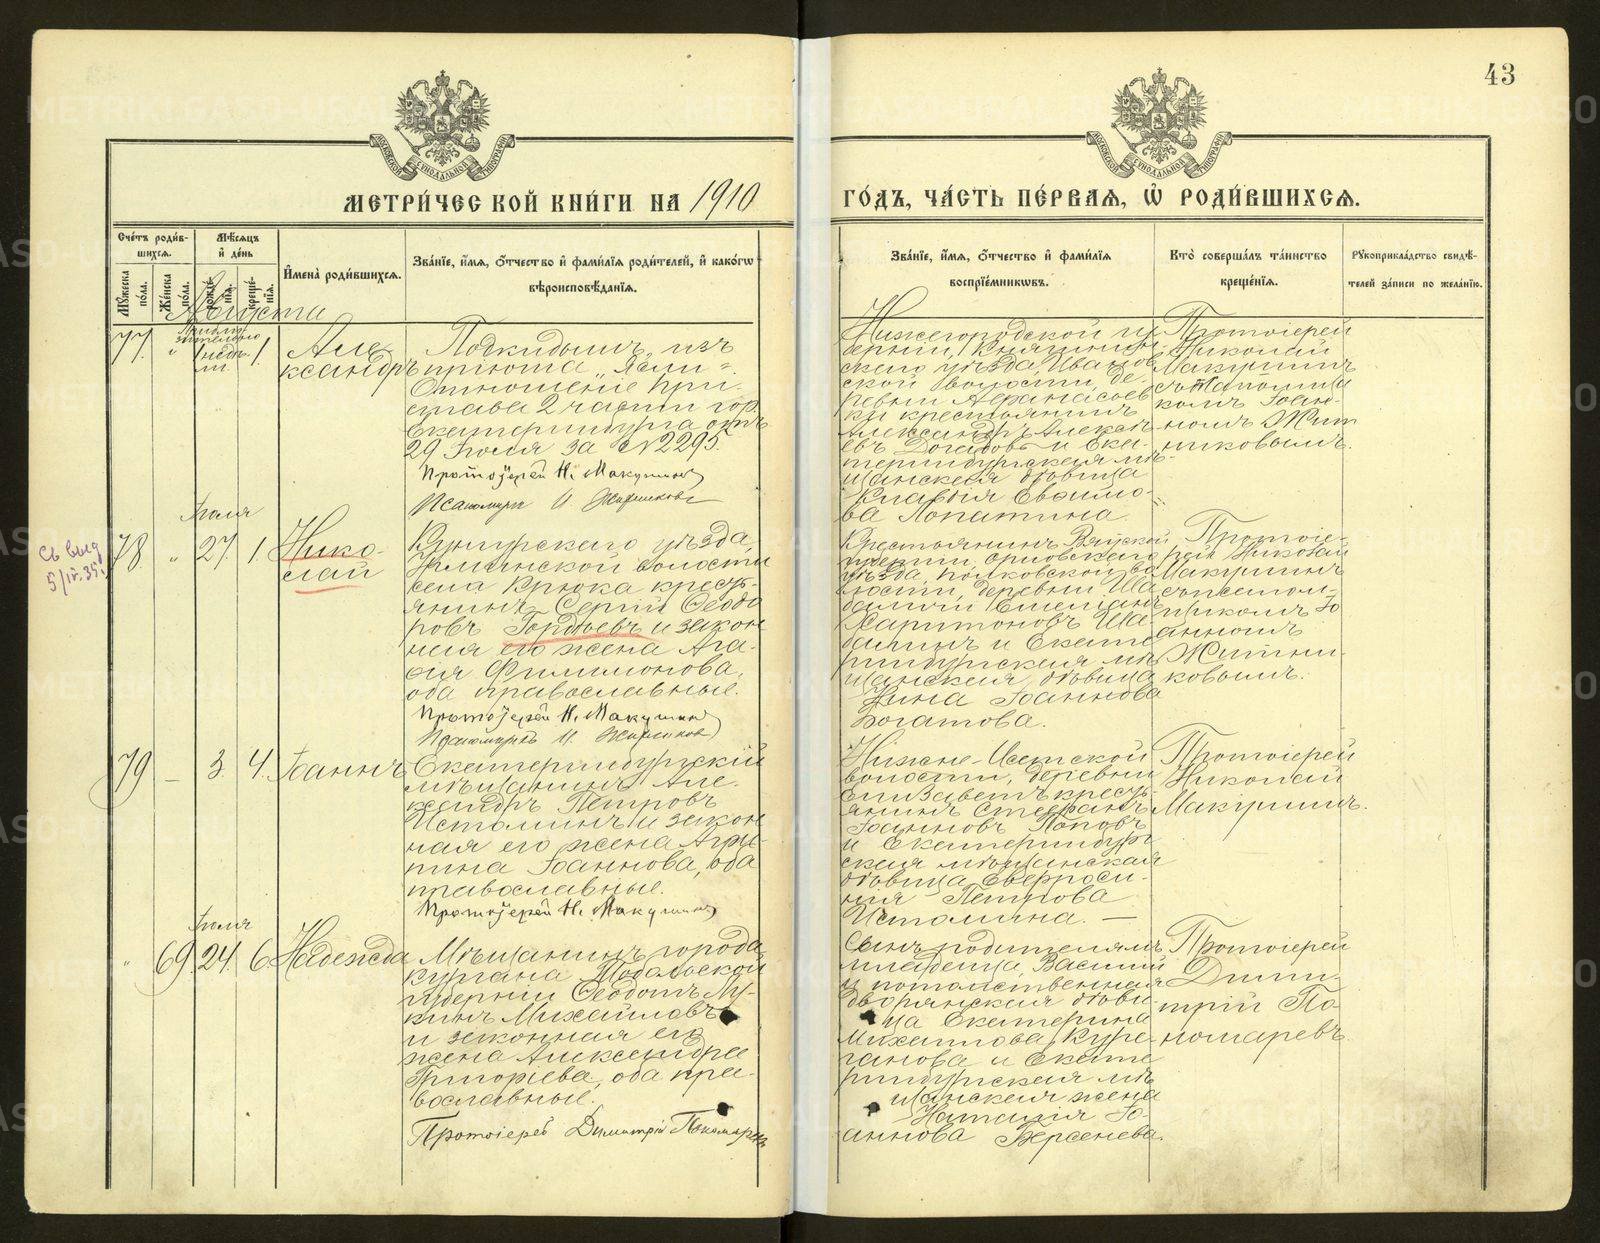 43
МОСКОВСКОЙ СѴНОДАЛЬНОЙ ТИПОГРАФІИ
МОСКОВСКОЙ СѴНОДАЛЬНОЙ ТИПОГРАФІИ
МЕТРИ́ЧЕСКОЙ КНИ́ГИ НА 1910
ГО́ДЪ, ЧА́СТЬ ПЕ́РВАЯ, Ѡ҆ РОДИ́ВШИХСЯ.
Сче́тъ роди́в-
шихся.
Мѣ́сяцъ
и҆ де́нь
Му́жеска по́ла.
Же́нска по́ла.
рожде́нїя.
креще́нїя.
И҆мена̀ роди́вшихся.
Зва́нїе, и҆́мя, ѻ҆́тчество и҆ фами́лїя роди́телей, и҆ како́гѡ
вѣроисповѣ́данїя.
Зва́нїе, и҆́мя, ѻ҆́тчество и҆ фами́лїя
воспрїе́мникѡвъ.
Кто̀ соверша́лъ та́инство
креще́нїя.
Рукоприкла́дство свидѣ́-
телей за́писи по жела́нїю.
Августа
77. " 1 1.
Але-
ксандръ
Подкидышъ, изъ
пріюта „Ясли".
Отношеніе при-
става 2 части гор.
Екатеринбурга отъ
29 Іюля за №2295.
Протоіерей Н. Макушинъ
Псаломщикъ И. Житниковъ
Нижегородской гу-
берніи, Княгинин-
скаго уѣзда,
ской волости, де-
ревни Афанасьев-
ки крестьянинъ
Александръ Алексѣ-
евъ Догадовъ и Ека-
теринбургская мѣ-
щанская дѣвица
Клавдія Евѳимо-
ва Лопатина.
Протоіерей
Николай
Макушинъ
съ псаломщи-
комъ Іоан-
номъ Жит-
никовымъ.
Іюля
78. " 27. 1
Нико-
лай
съ выд
5/IV.35г.
Кунгурскаго уѣзда,
волости
села Крюка кресть-
янинъ Сергій Ѳеодо-
ровъ Гордѣевъ и закон-
ная его жена Ага-
ѳія Филимонова,
оба православные.
Протоіерей Н. Макушинъ
Псаломщикъ И. Житниковъ
Крестьянинъ Вятской
губерніи, Орловскаго
уѣзда, во-
лости, деревни Ша-
Емеліанъ
Харитоновъ Ша-
и Екате-
ринбургская мѣ-
щанская дѣвица
Нина Іоаннова
Богатова.
Протоіе-
рей Николай
Макушинъ
съ псалом-
щикомъ Іо-
анномъ
Житни-
ковымъ.
79 — 3. 4.
Іоаннъ
Екатеринбургскій
мѣщанинъ Але-
ксандръ Петровъ
Истоминъ и закон-
ная его жена Агри-
пина Іоаннова, оба
православные.
Протоіерей Н. Макушинъ
Нижне-Исетской
волости, деревни
Елизаветъ кресть-
янинъ Стефанъ
Іоанновъ Поповъ
и Екатеринбург-
ская мѣщанская
дѣвица Евфроси-
нія Петрова
Истомина. —
Протоіерей
Николай
Макушинъ.
Іюля
" 69. 24. 6.
Надежда
Мѣщанинъ города
Кургана Тобольской
губерніи Ѳеодотъ Лу-
кинъ Михайловъ
и законная его
жена Александра
Григоріева, оба пра-
вославные.
Протоіерей Димитрій Пономаревъ
Сынъ родителямъ
младенца, Василій
и потомственная
дворянская дѣви-
ца Екатерина
Михаилова Кур-
ганова и Екате-
ринбургская мѣ-
щанская жена
Наталія Іо-
аннова Берсенева.
Протоіерей
Дими-
трій По-
номаревъ